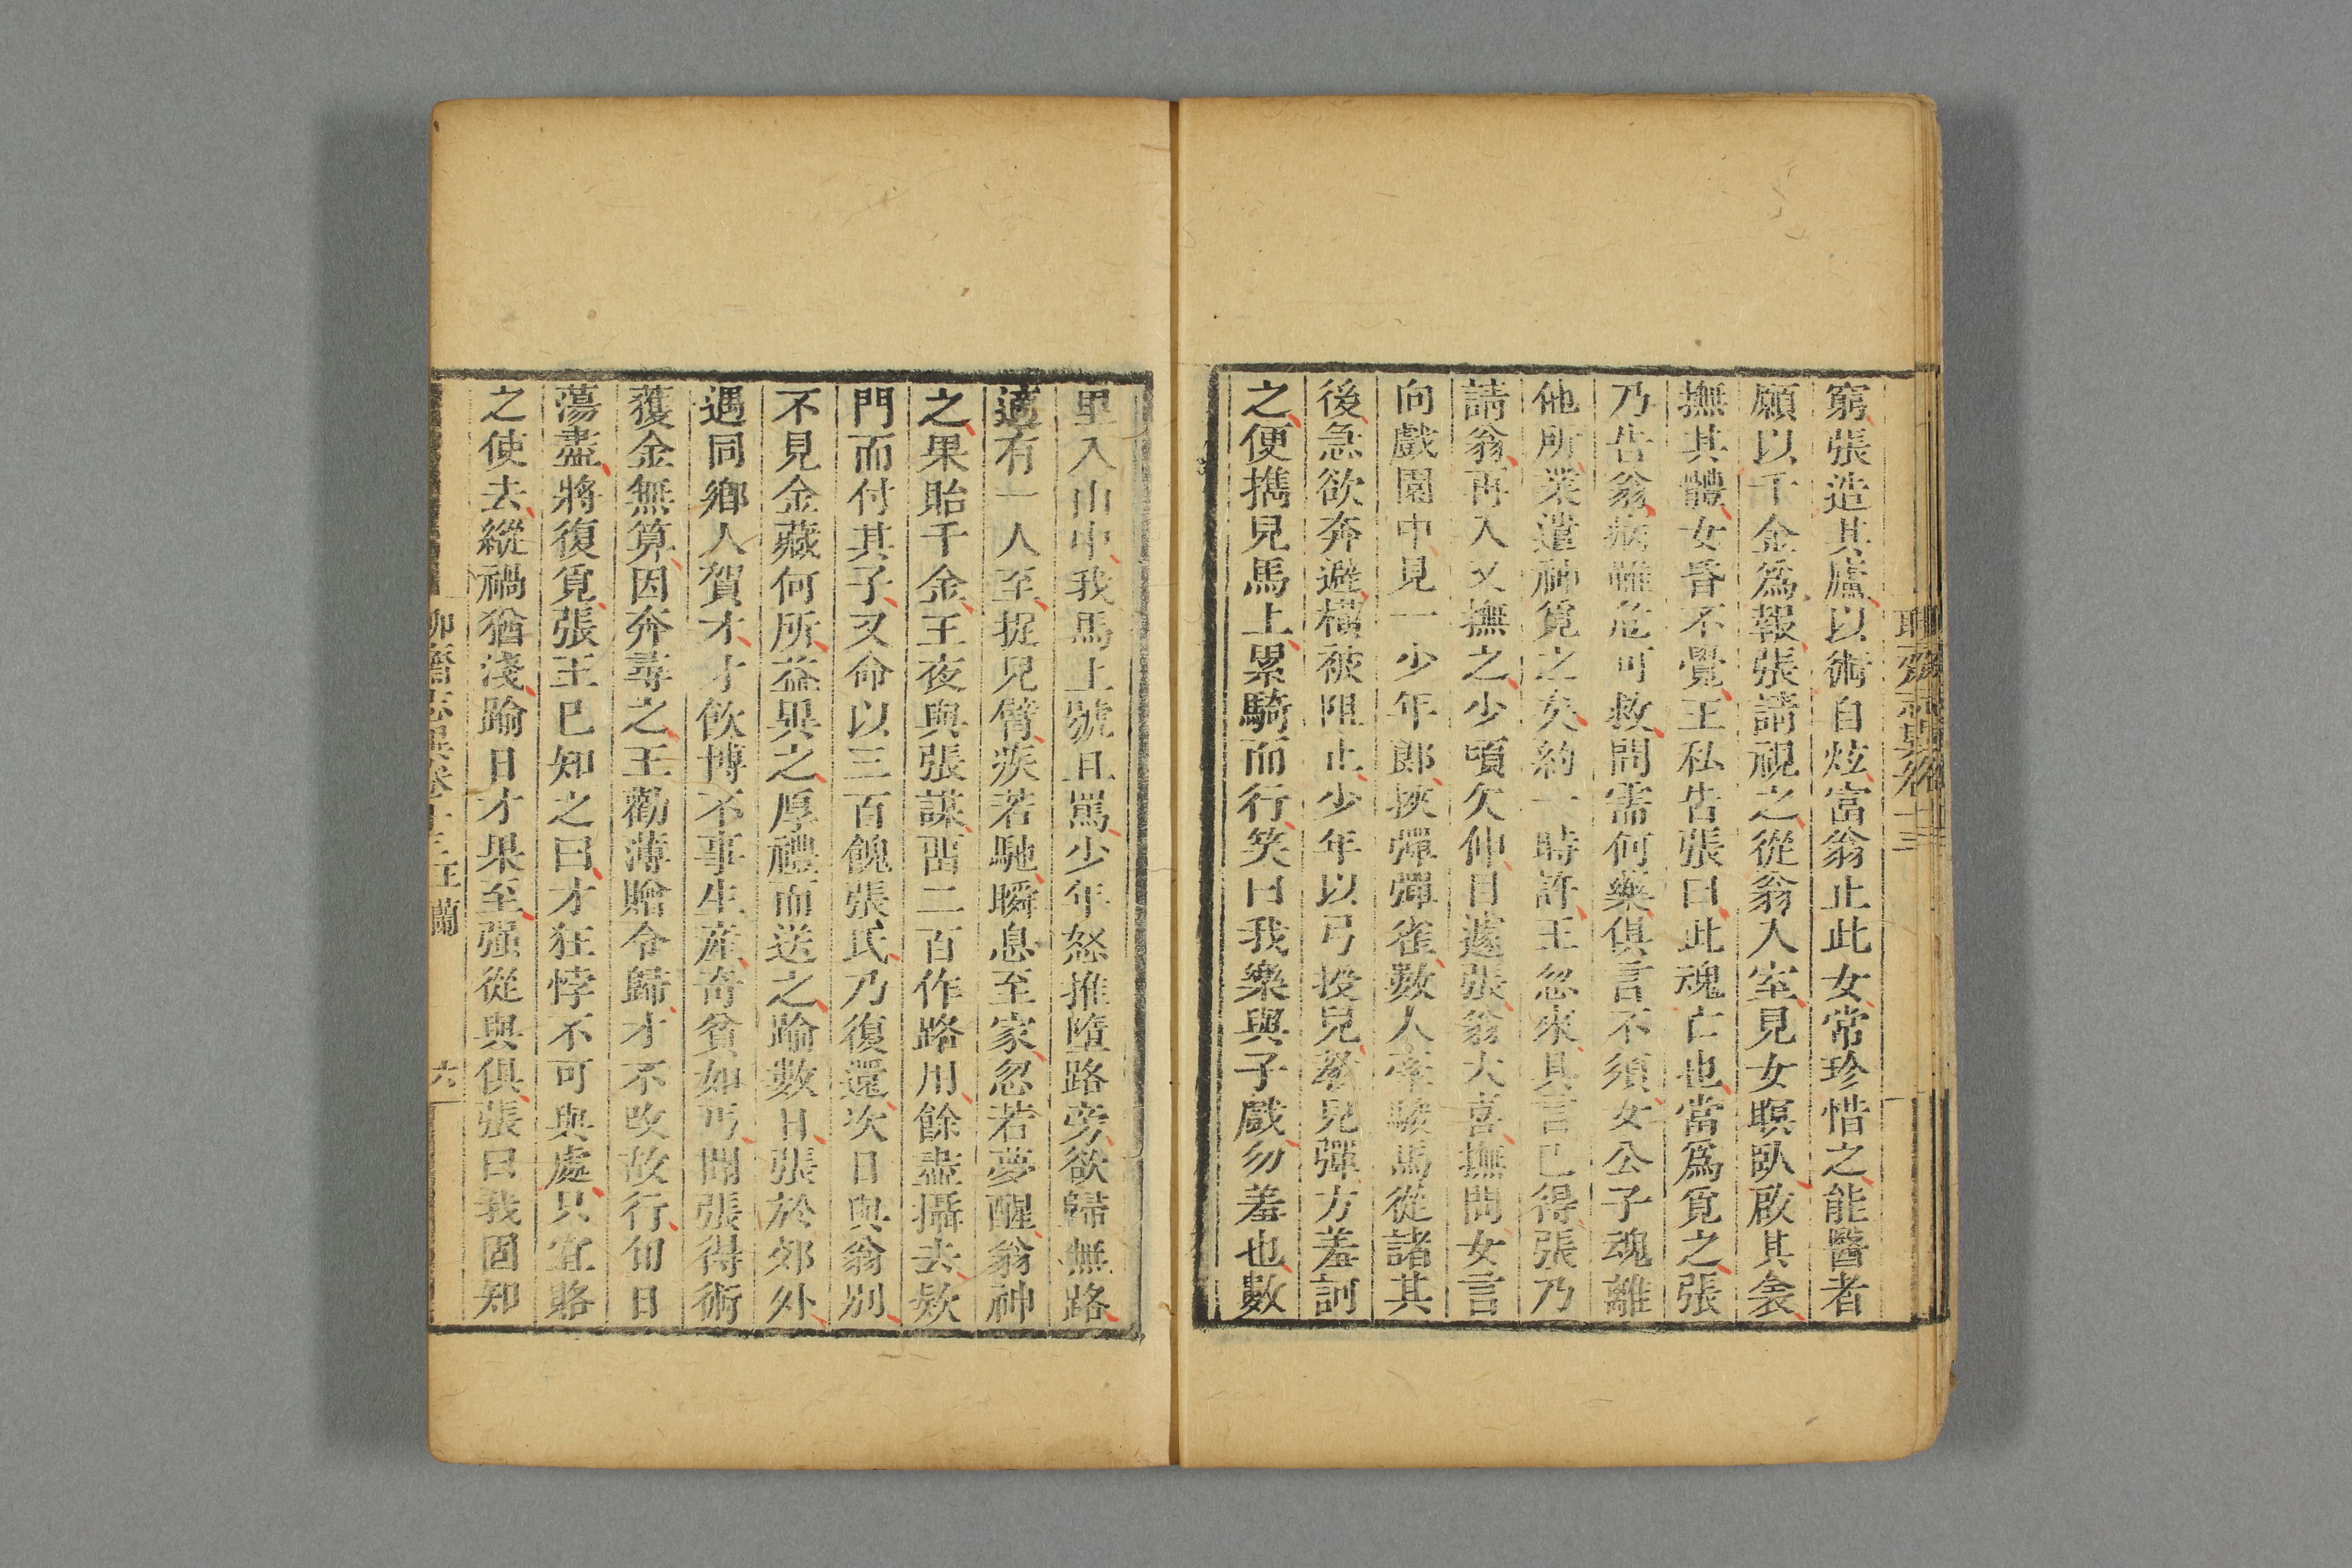 窮張造其廬以術自炫富翁止此女常珍惜之能醫者
願以千金爲報張請視之從翁入室見女瞑臥啟其衾
撫其體女昏不覺王私告張曰此魂亡也當爲覓之張
乃告翁病雖危可救問需何藥俱言不須女公子魂離
他所業遣神覓之矣約一時許王忽來具言已得張乃
請翁再入又撫之少頃欠伸目遽張翁大喜撫問女言
向戲園中見一少年郎挾彈彈雀數人牽駿馬從諸其
後急欲奔避橫被阻止少年以弓授兒教兒彈方羞訶
之便擕兒馬上累騎而行笑曰我樂與子戲勿羞也數
里入山中我馬上號且罵少年怒推墮路旁欲歸無路
適有一人至捉兒臂疾若馳瞬息至家忽若夢醒翁神
之果貽千金王夜與張謀畱二百作路用餘盡攝去欵
門而付其子又命以三百餽張氏乃復還次日與翁別
不見金藏何所益異之厚禮而送之踰數日張於郊外
遇同鄉人賀才才飲博不事生産奇貧如丐聞張得術
獲金無算因奔尋之王勸薄贈令歸才不改故行旬日
蕩盡將復覓張王已知之曰才狂悖不可與處只宜賂
之使去縱禍猶淺踰日才果至强從與俱張曰我固知
聊齋志異卷十三 王蘭 六